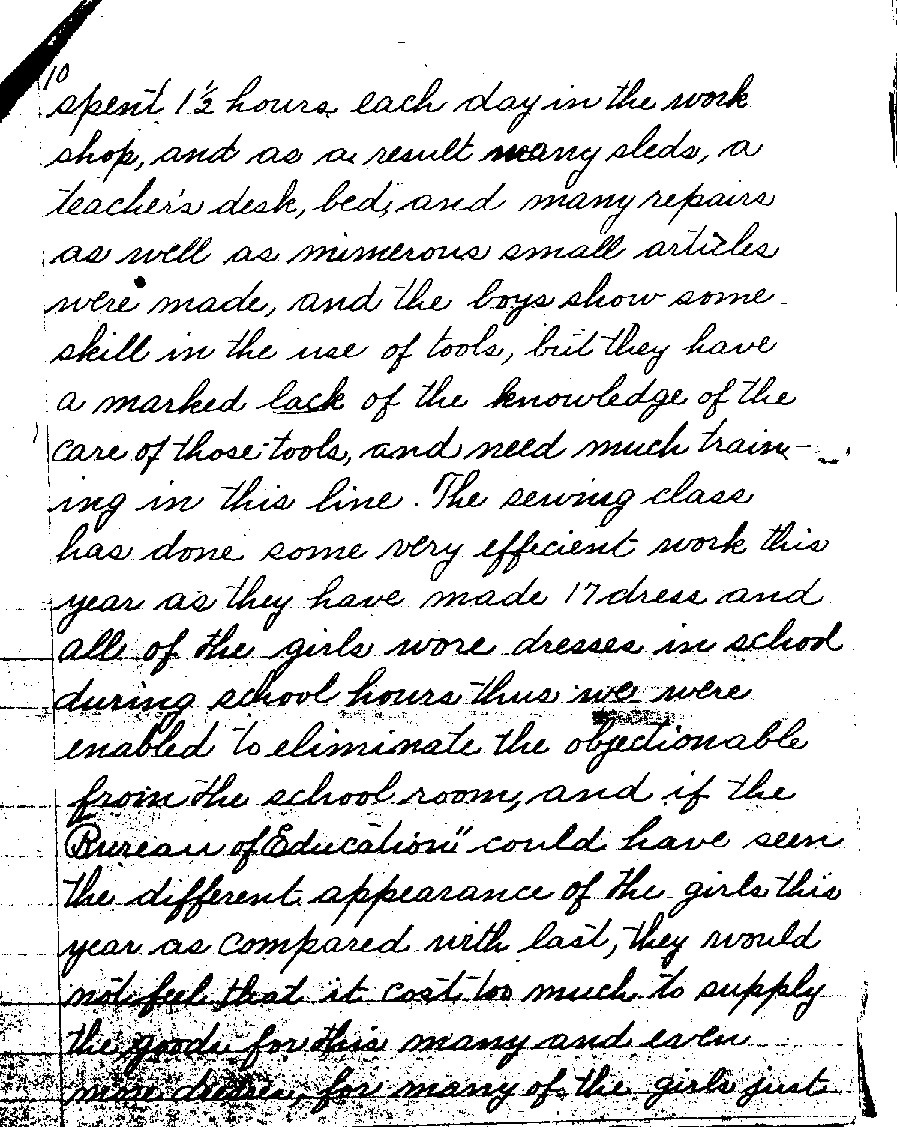 10
spent 1½ hours each day in the work
shop, and as a result many sleds, a
teacher's desk, bed, and many repairs
as well as numerous small articles
were made, and the boys show some
skill in the use of tools, but they have
a marked lack of the knowledge of the
care of those tools, and need much train-
ing in this line. The sewing class
has done some very efficient work this
year as they have made 17 dress and
all of the girls wore dresses in school
during school hours thus we were
enabled to eliminate the objectionable
from the school room, and if the
Bureau of Education" could have seen
the different appearance of the girls this
year as compared with last, they would
not feel that it cost too much to supply
the goods for this many and even
more dresses, for many of the girls just